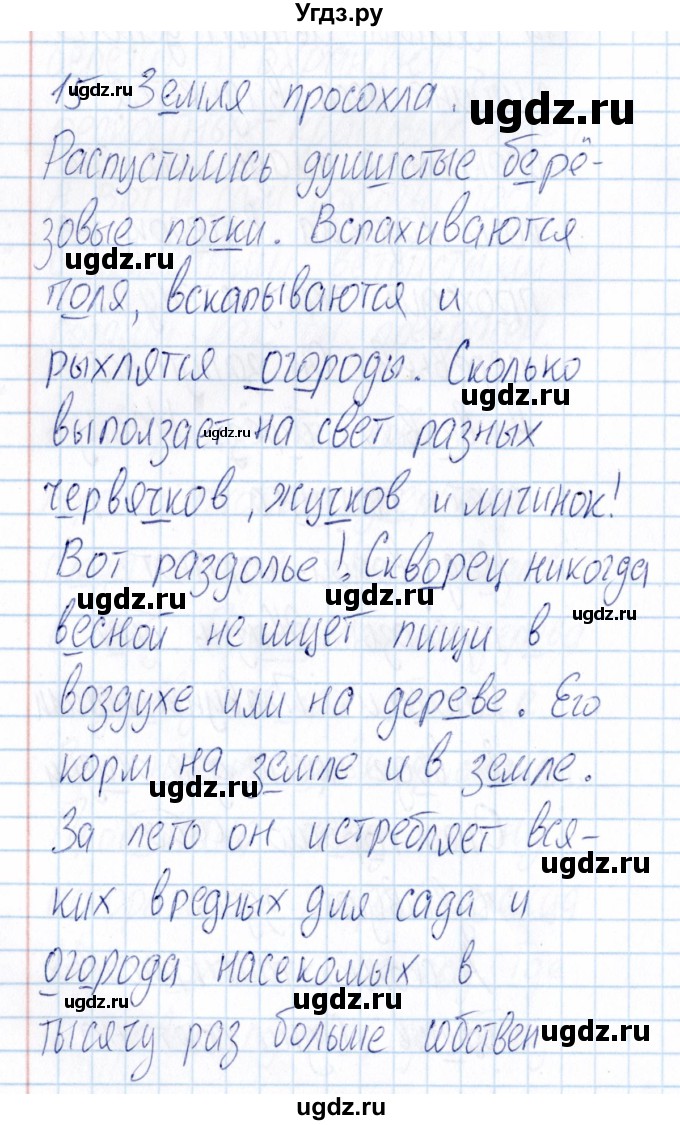 Угдз.ру
15 Земля просохла.
ugdz.ru
ugdz.ru
Распустились душистые берё-
зовые почки. Вспахиваются
ugdz.ru
поля, вскапываются и
рыхлятся огороды. Сколько
ugdz.ru
выползает на свет разных
ugdz.ru
червячков, жучков и личинок!
Вот раздолье! Скворец никогда
ugdz.ru
ugdz.ru
ugdz.ru
весной не ищет пищи в
воздухе или на дереве. Его
корм на земле и в земле.
ugdz.ru
За лето он истребляет вся-
ugdz.ru
ких вредных для сада и
огорода насекомых в
ugdz.ru
ugdz.ru
тысячу раз больше собствен
ugdz.ru
ugdz.ru